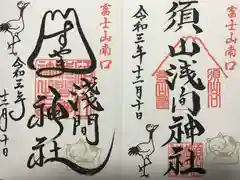 富士山南口
須山浅间神社
令和三年十二月十日
富士山南口
浅間
神社
令和三年
十二月十日